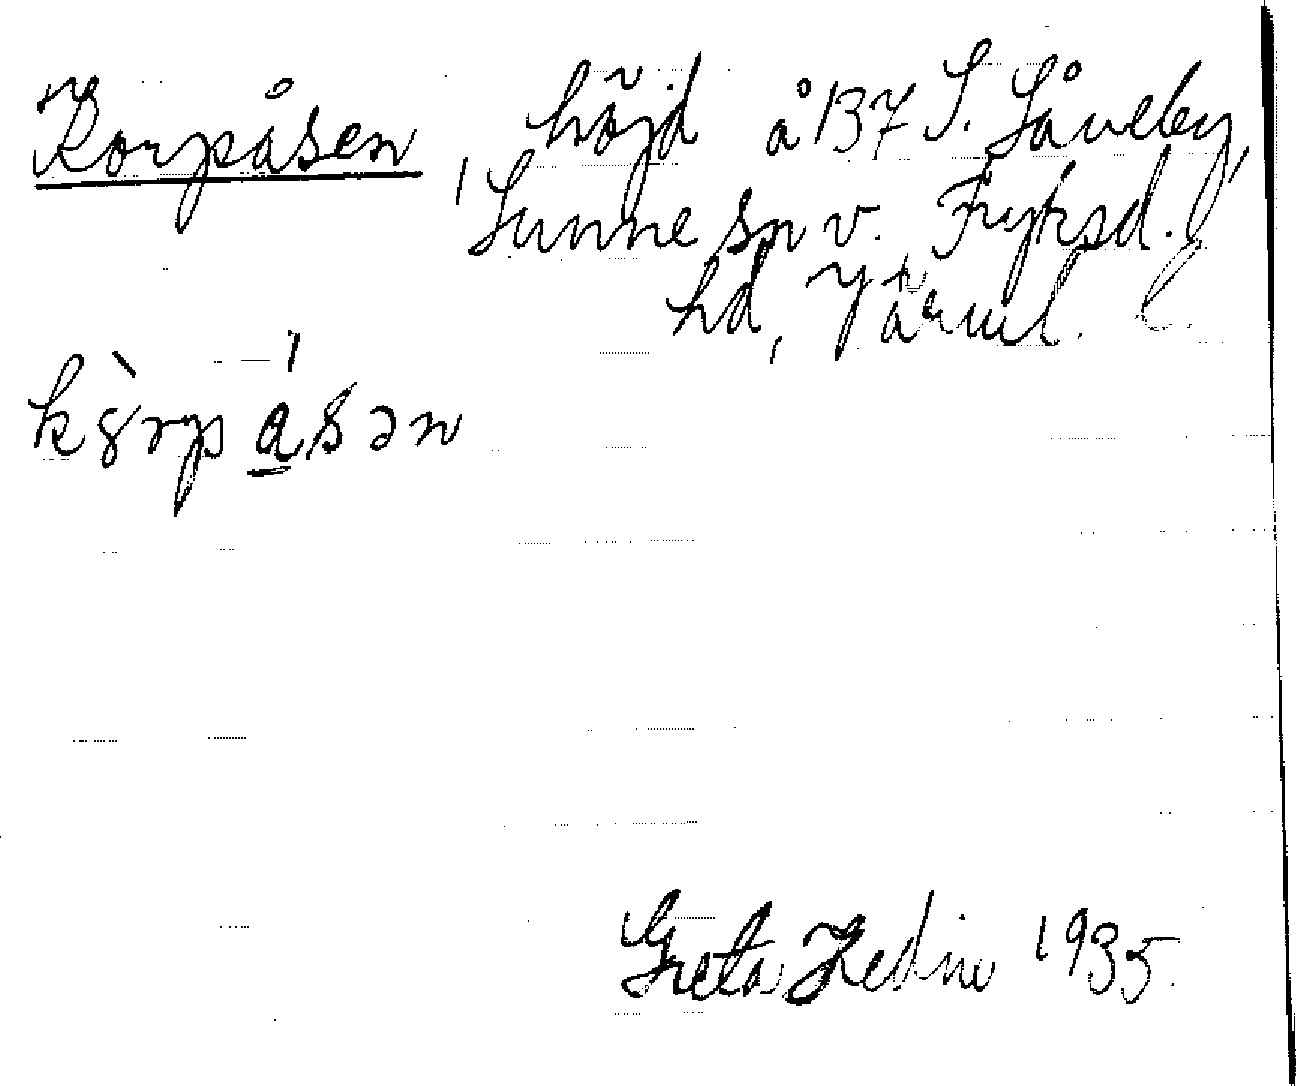 Korpåsen, höjd å 137 S. Såneby,
Sunne sn v. Fryksd.
hd, Värml. l.
kȣ̀rpa̲sən
Greta Hedin 1935.